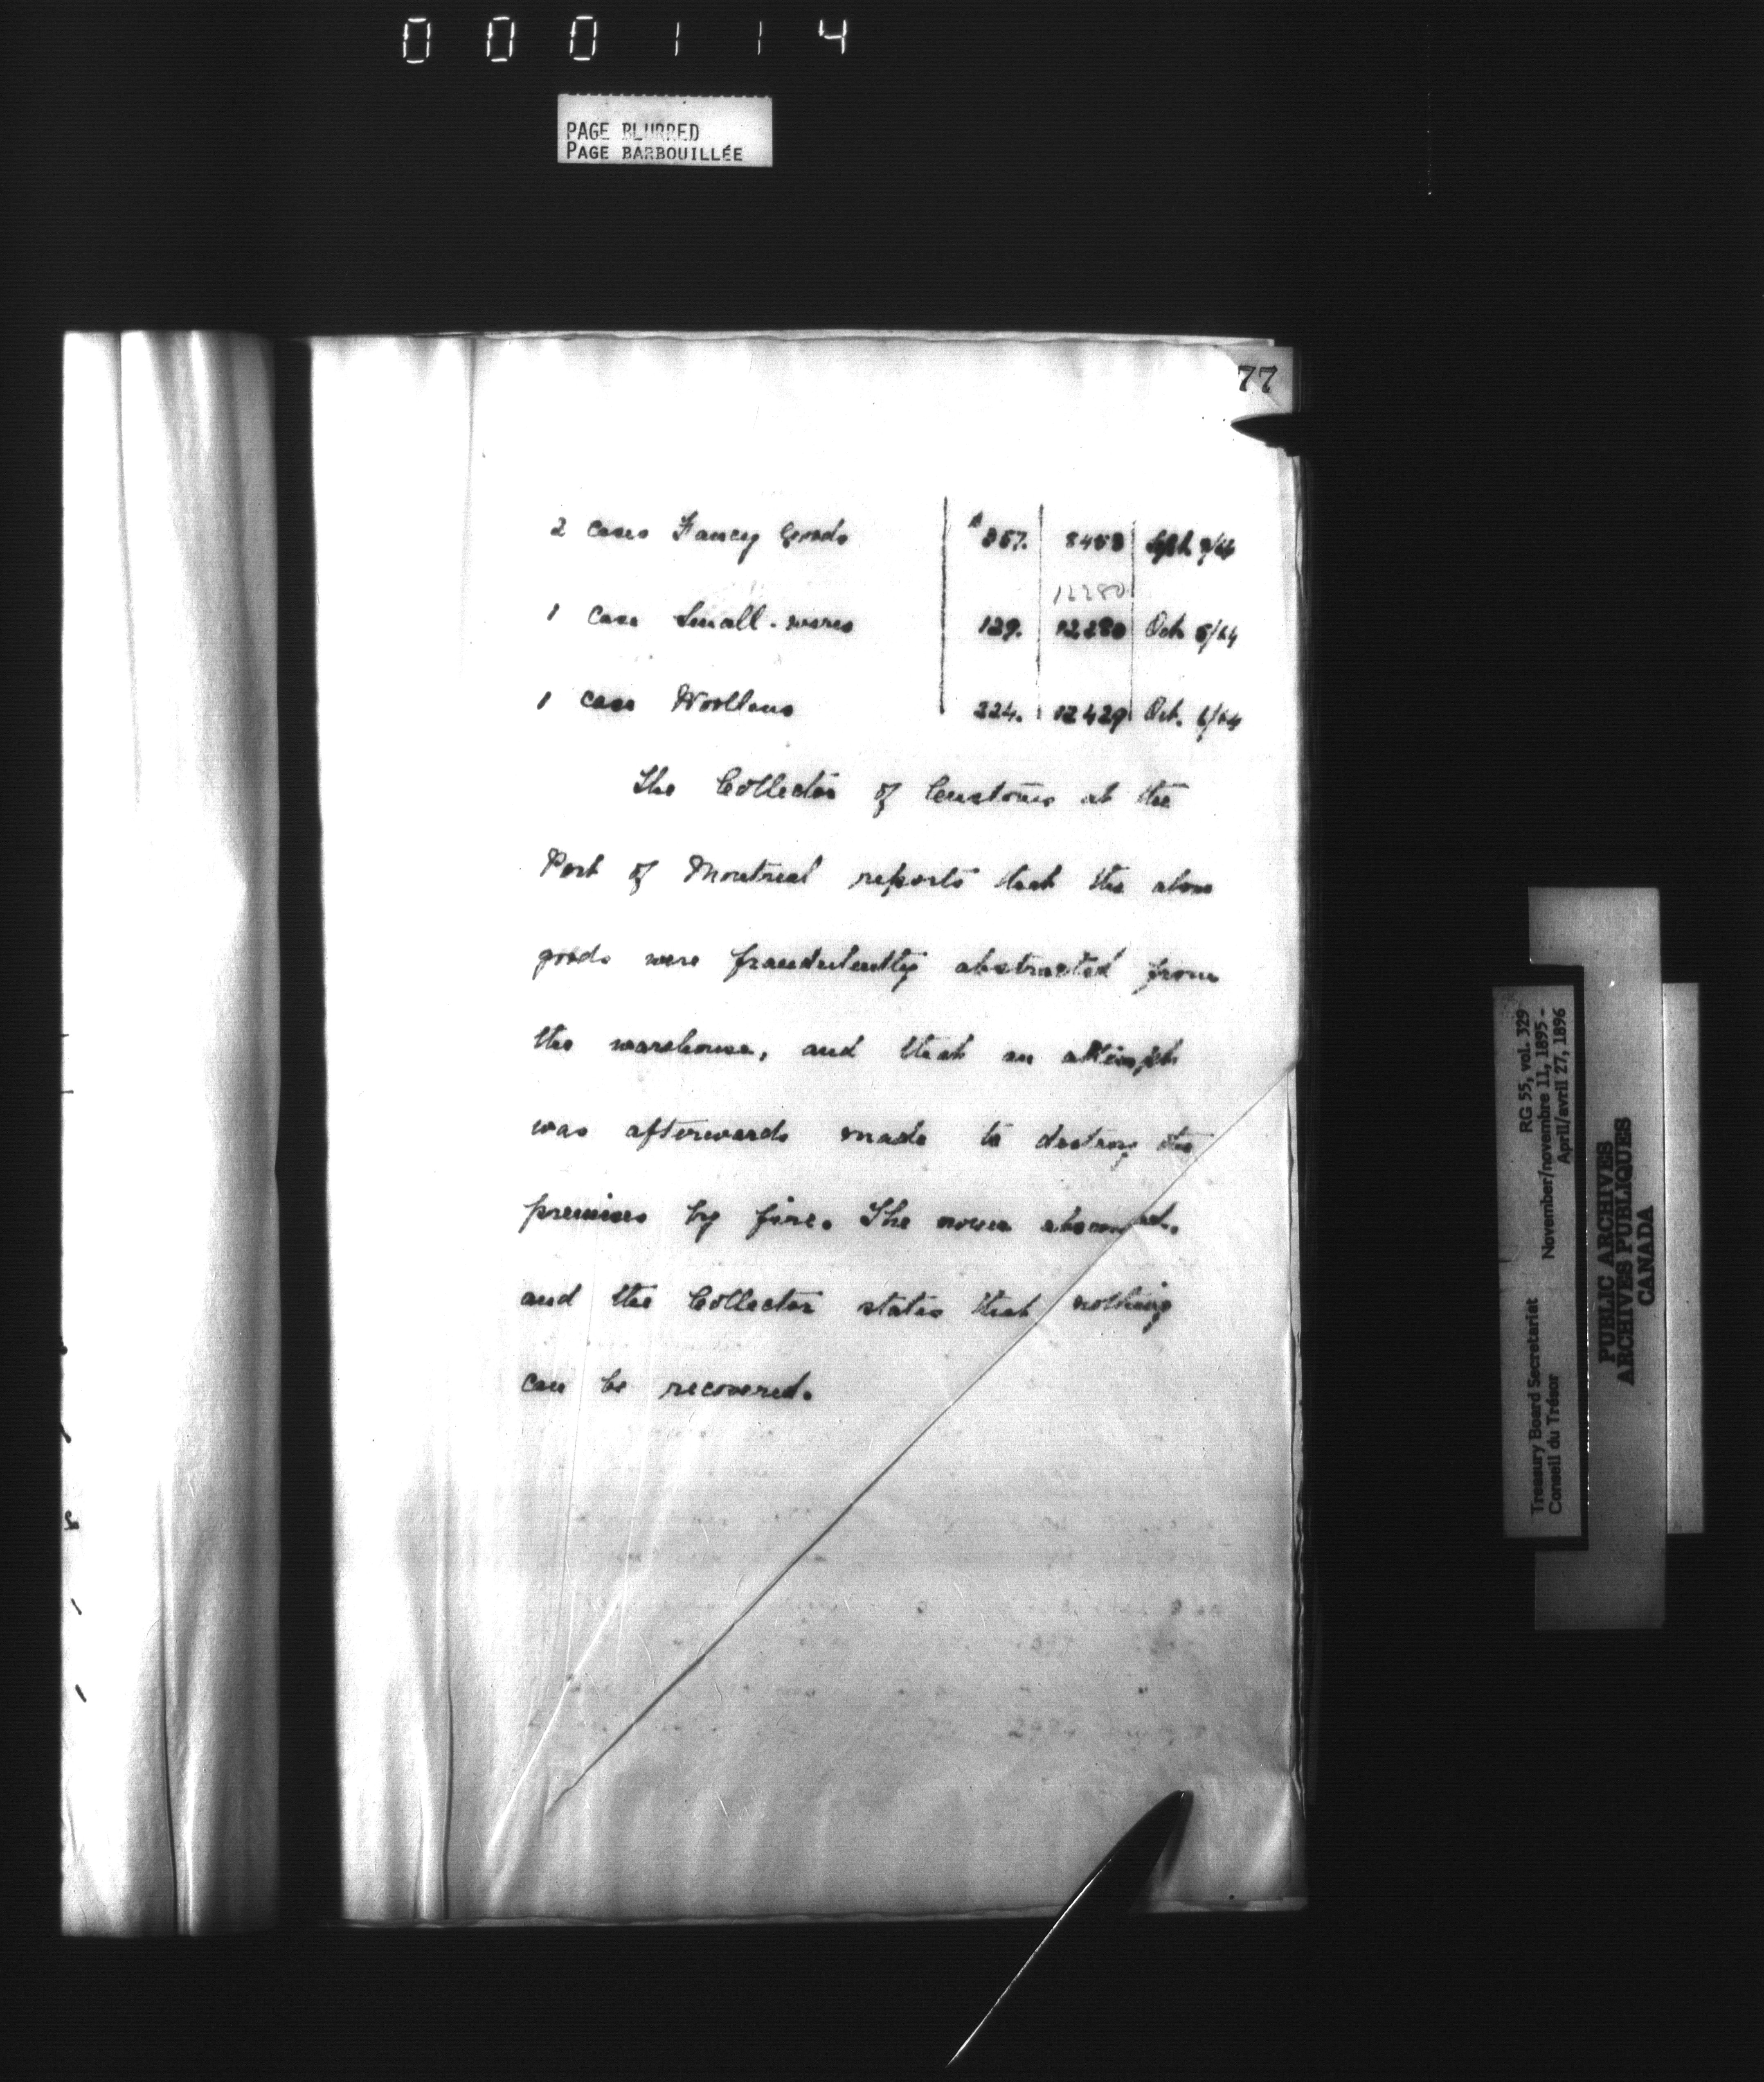 000114
PAGE BLURRED
PAGE BARBOUILLÉE
77
2 cases Fancy Goods $357. 8453 Sept. 9/64
12280
1 case Small-wares 129. 12280 Oct. 5/64
1 case Woollens 224. 12429 Oct. 6/64
The Collector of Customs at the
Port of Montreal reports that the above
goods were fraudulently abstracted from
the warehouse, and that an attempt
was afterwards made to destroy the
premises by fire. The owner absconded,
and the Collector states that nothing
can be recovered.
RG 55, vol. 329
November/novembre 11, 1895 -
April/avril 27, 1896
Treasury Board Secretariat
Conseil du Trésor
PUBLIC ARCHIVES
ARCHIVES PUBLIQUES
CANADA